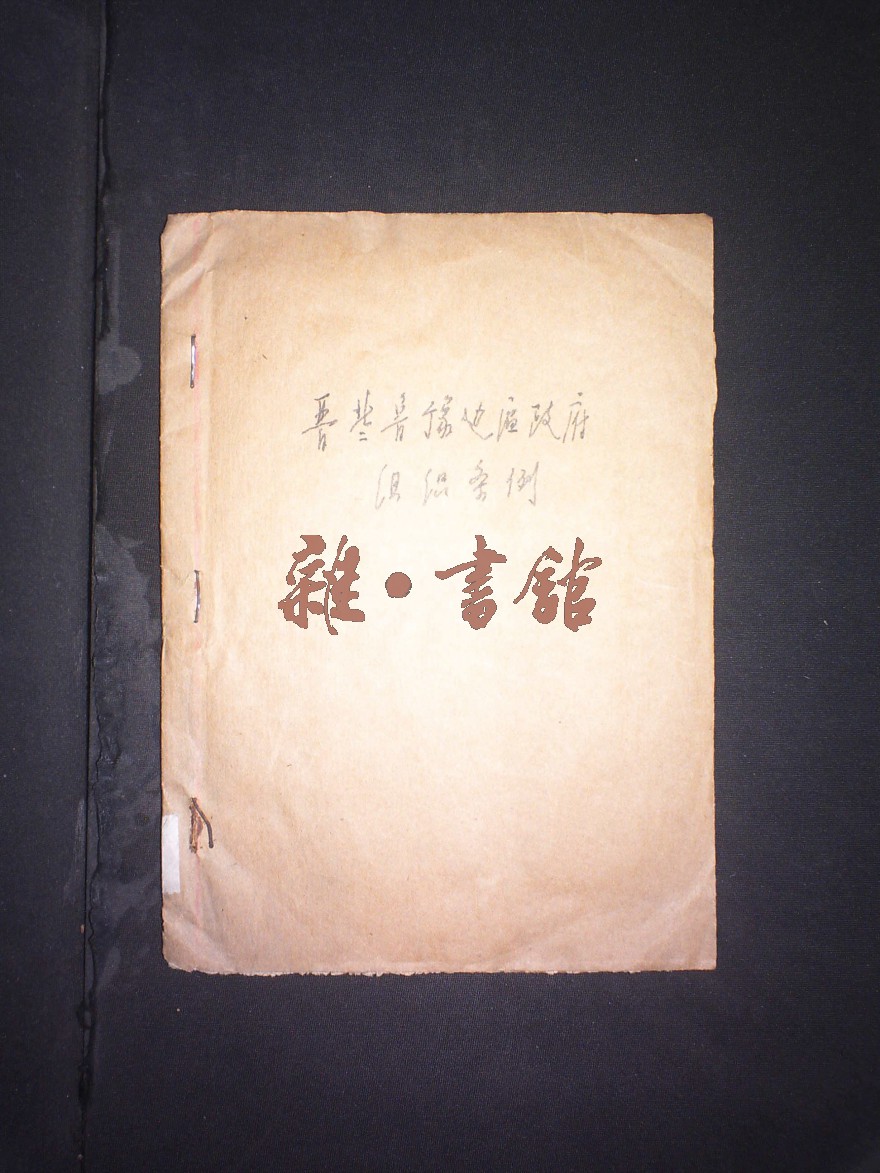 晋冀鲁豫边区政府
组织条例
雜•書館